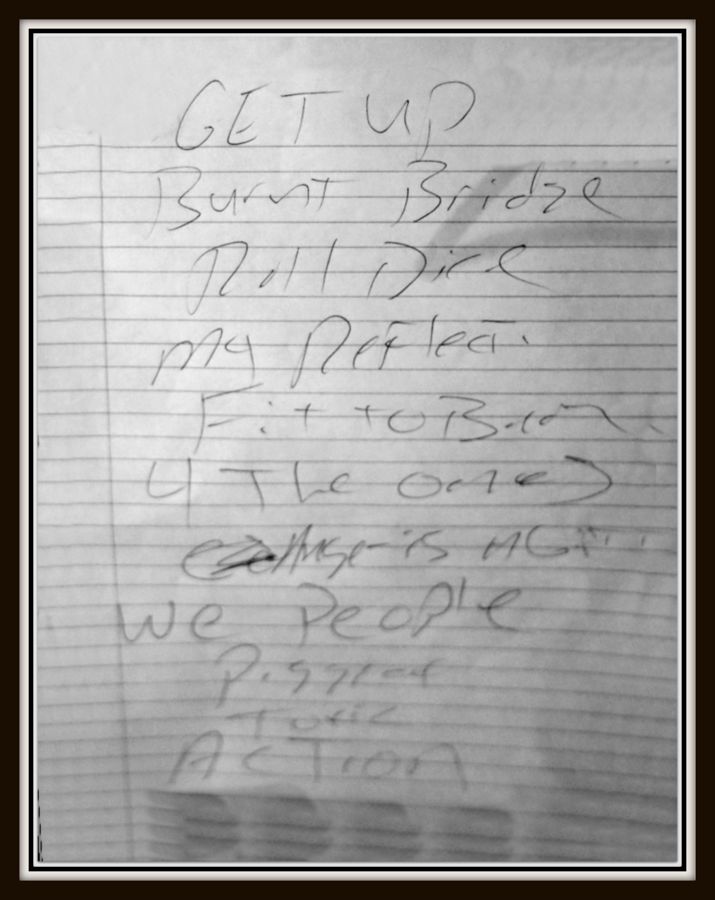 GET UP
Burnt Bridge
Roll Dice
My Reflect.
Fit to Burn
4 The ones
is
We PeoPle
Toxic
ACTION